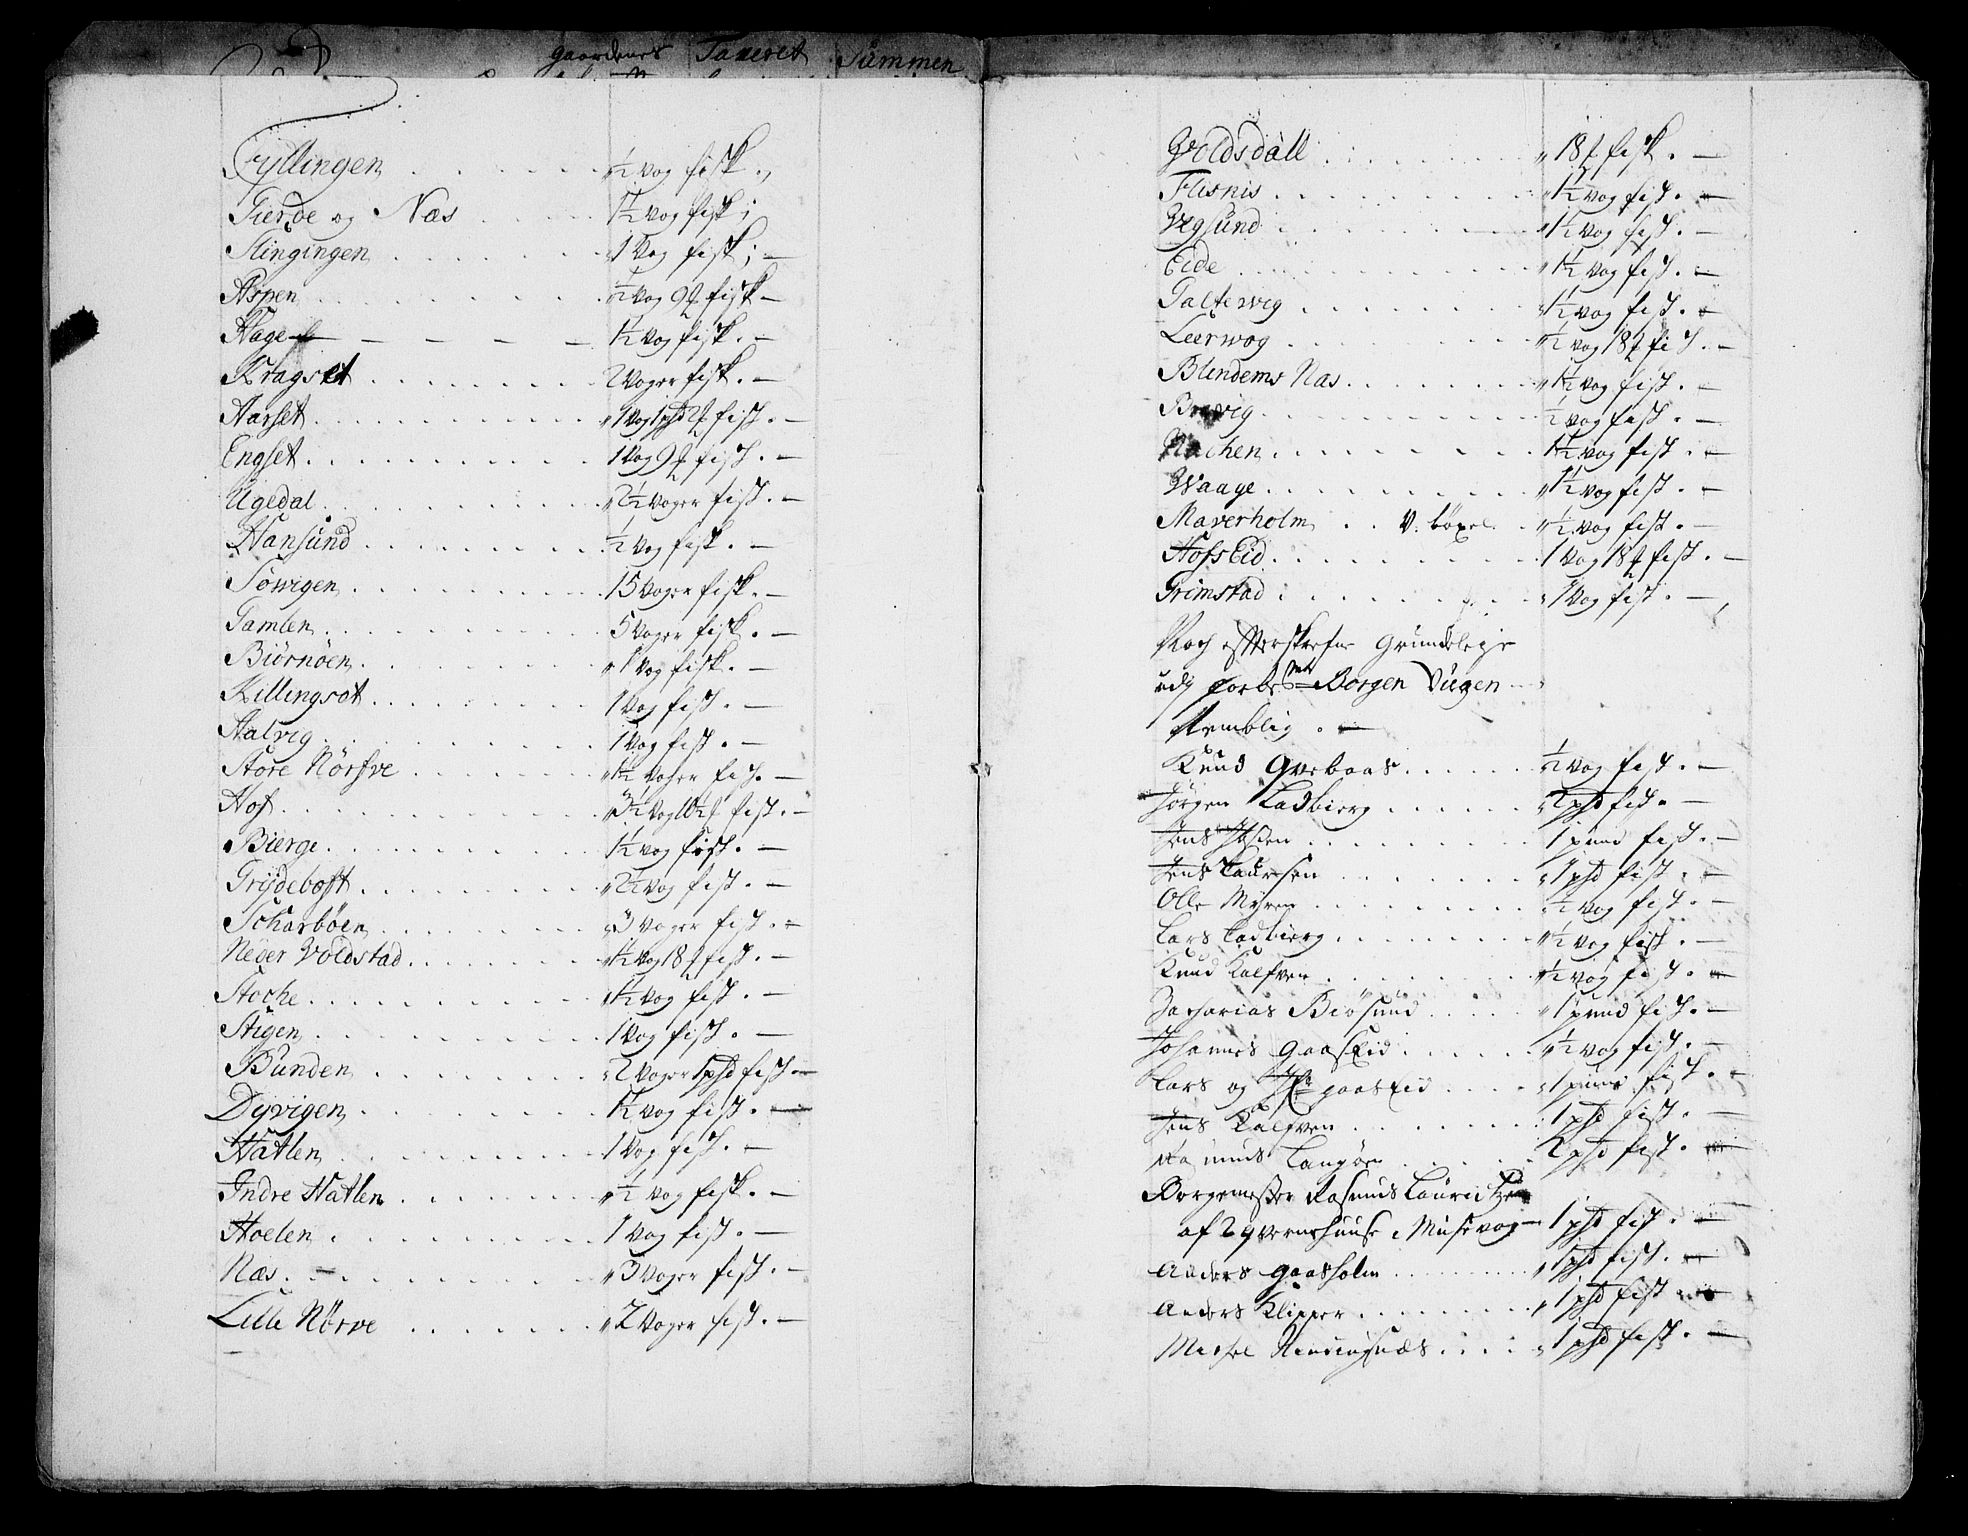 gaardenes Taxeret Summen
Fyllingen . . . . ½ vog fisk.
Gierde og Næs . . . 1½ vog fisk;
Slingingen . . . . 1 vog fisk; —
Aspen . . . . ½ vog 9 ℔ fisk —
Hage — — — — 1½ vog fisk. —
Kragset . . . . 2 voger fisk. —
Aarset . . . . 1 vog 1 phd 2 ℔ fisk. —
Engset . . . . 1 vog 9 ℔ fisk. —
Ugedal . . . . 2½ voger fisk. —
Hansund . . . . ½ vog fisk. —
Sowigen . . . . 15 voger fisk. —
Gamlen . . . . 5 voger fisk. —
Biörnöen . . . . 1 vog fisk. —
Killingsöt . . . . 1 vog fisk. —
Aalvig . . . . 1 vog fisk. —
Store Nörfve . . . . 1½ voger fisk. —
Hof . . . . 3½ vog 10½ ℔ fisk. —
Bierge . . . . 1½ vog fisk. —
Grydeboft . . . . 2½ vog fisk. —
Scharböen . . . . 3 voger fisk. —
Neder Voldstad . . . . 1½ vog 18 ℔ fisk. —
Stoche . . . . 1½ vog fisk. —
Stigen . . . . 1 vog fisk. —
Bunden . . . . 2 voger 1 phd fisk. —
Dyvigen . . . . 1½ vog fisk. —
Hatlen . . . . 1 vog fisk. —
Indre Hatlen . . . . ½ vog fisk. —
Hoelen . . . . 1 vog fisk. —
Næs . — . . . . 3 voger fisk. —
Lille Nörve . . . . 2 voger fisk. —
Voldsdall . . . . 18 ℔ fisk. —
Flisnis . . . . 1½ vog fisk. —
Vegsund . . . . 1½ vog fisk. —
Eide . . . . 1½ vog fisk. —
Galtewig . . . . 1½ vog fisk. —
Leerwog . . . . ½ vog 18 ℔ fisk. —
Blindems Næs . . . . 1½ vog fisk. —
Brevig . . . . ½ vog fisk. —
Nachen . . . . 1½ vog fisk. —
Waage . . . . 1½ vog fisk. —
Maverholm . . v. böxel . . ½ vog fisk. —
Hofs Eid . . . . 1 vog 18 ℔ fisk. —
Grimstad . . . . 1 vog fisk. —
Noch efterskrefne Grundeleje
udj Borgen Vugen
Nemblig . —
Knud Qvebaas . . . . ½ vog fisk. —
Jörgen Ladbierg . . . . 2 phd fisk. —
Jens . . . . 1 pund fisk. —
Jens Laursen . . . . 1 phd fisk. —
Olle Myren . . . . ½ vog fisk. —
Lars Ladbierg . . . . ½ vog fisk. —
Knud Kalfven . . . . ½ vog fisk. —
Zacharias Biösund . . . . 1 pund fisk. —
Johannes Gaaseid . . . . ½ vog fisk. —
Lars og Gaaseid . . . . 1 pund fisk. —
Jens Kalfven . . . . 1 phd fisk. —
Rasmus Langöen . . . . 2 phd fisk. —
Borgemester Rasmus Lauridtzen
af 2 qvernehuuse i Musevog — 1 phd fisk. —
Anders Gaasholm . . . . 1 phd fisk. —
Anders Klipper . . . . 1 phd fisk —
Michel . . . . 1 phd fisk. —